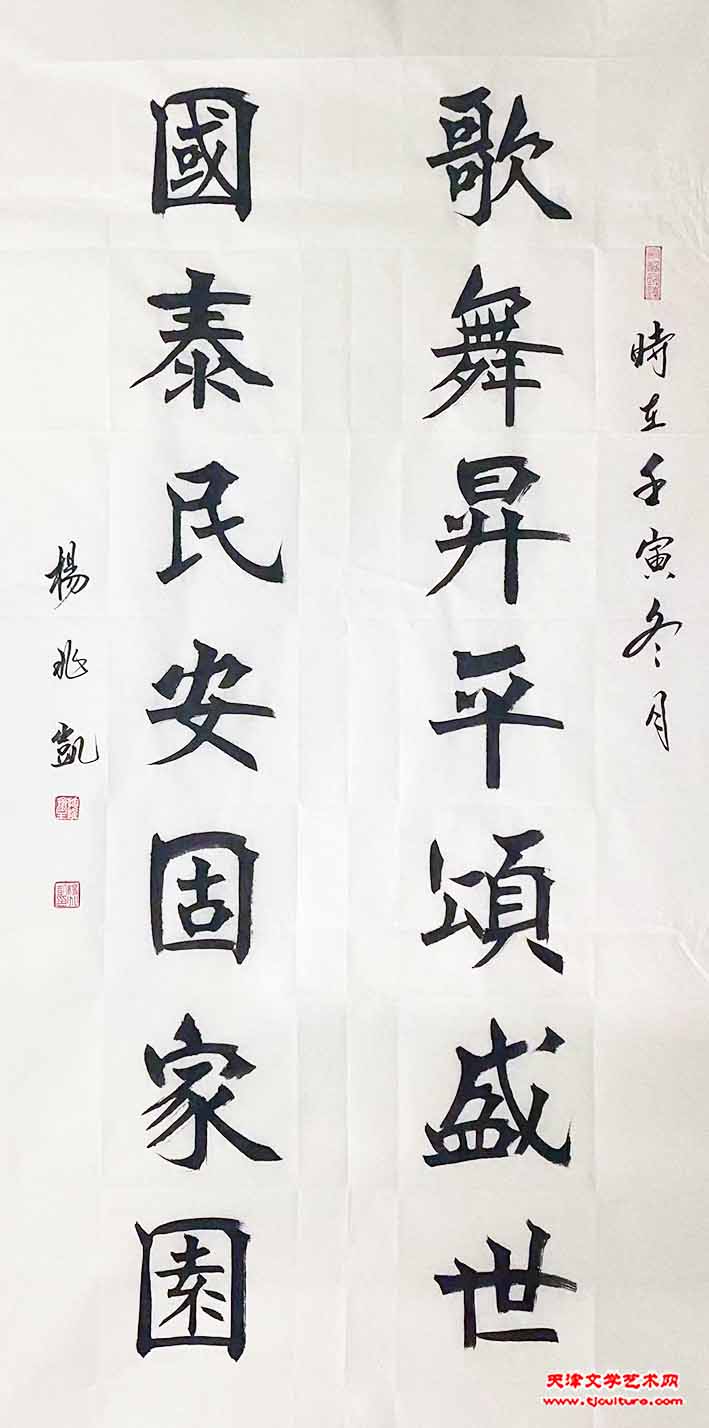 時在壬寅冬月
歌舞昇平頌盛世
國泰民安固家園
楊兆凱
天津文学艺术网
www.tjculture.com